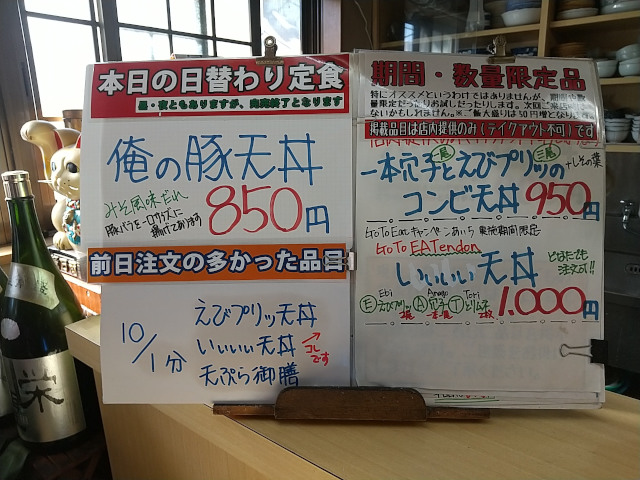 本日の日替わり定食
昼・夜ともありますが、完売終了となります
俺の豚天丼
みそ風味だれ
850円
前日注文の多かった品目
10/1分
えびプリッ天丼
いいいい天丼
コレです
天ぷら御膳
期間・数量限定品
特にオススメというわけではありませんが、期間や数
量限定だったりお試しだったりします。次回ご来店時
ないかもしれません。※ご飯大盛りは50円増となります
掲載品目は店内提供のみ(テイクアウト不可)です
一本穴子と二尾えびプリッの三尾
+しその葉
コンビ天丼 950円
GoToEatキャンペーンあいち 実施期間限定
GoTo EATendon
いいいい天丼
どなたでも
注文可!!
Ebi Anago Tori
Eえびプリッ A穴子 Tとり
1.000円
栄